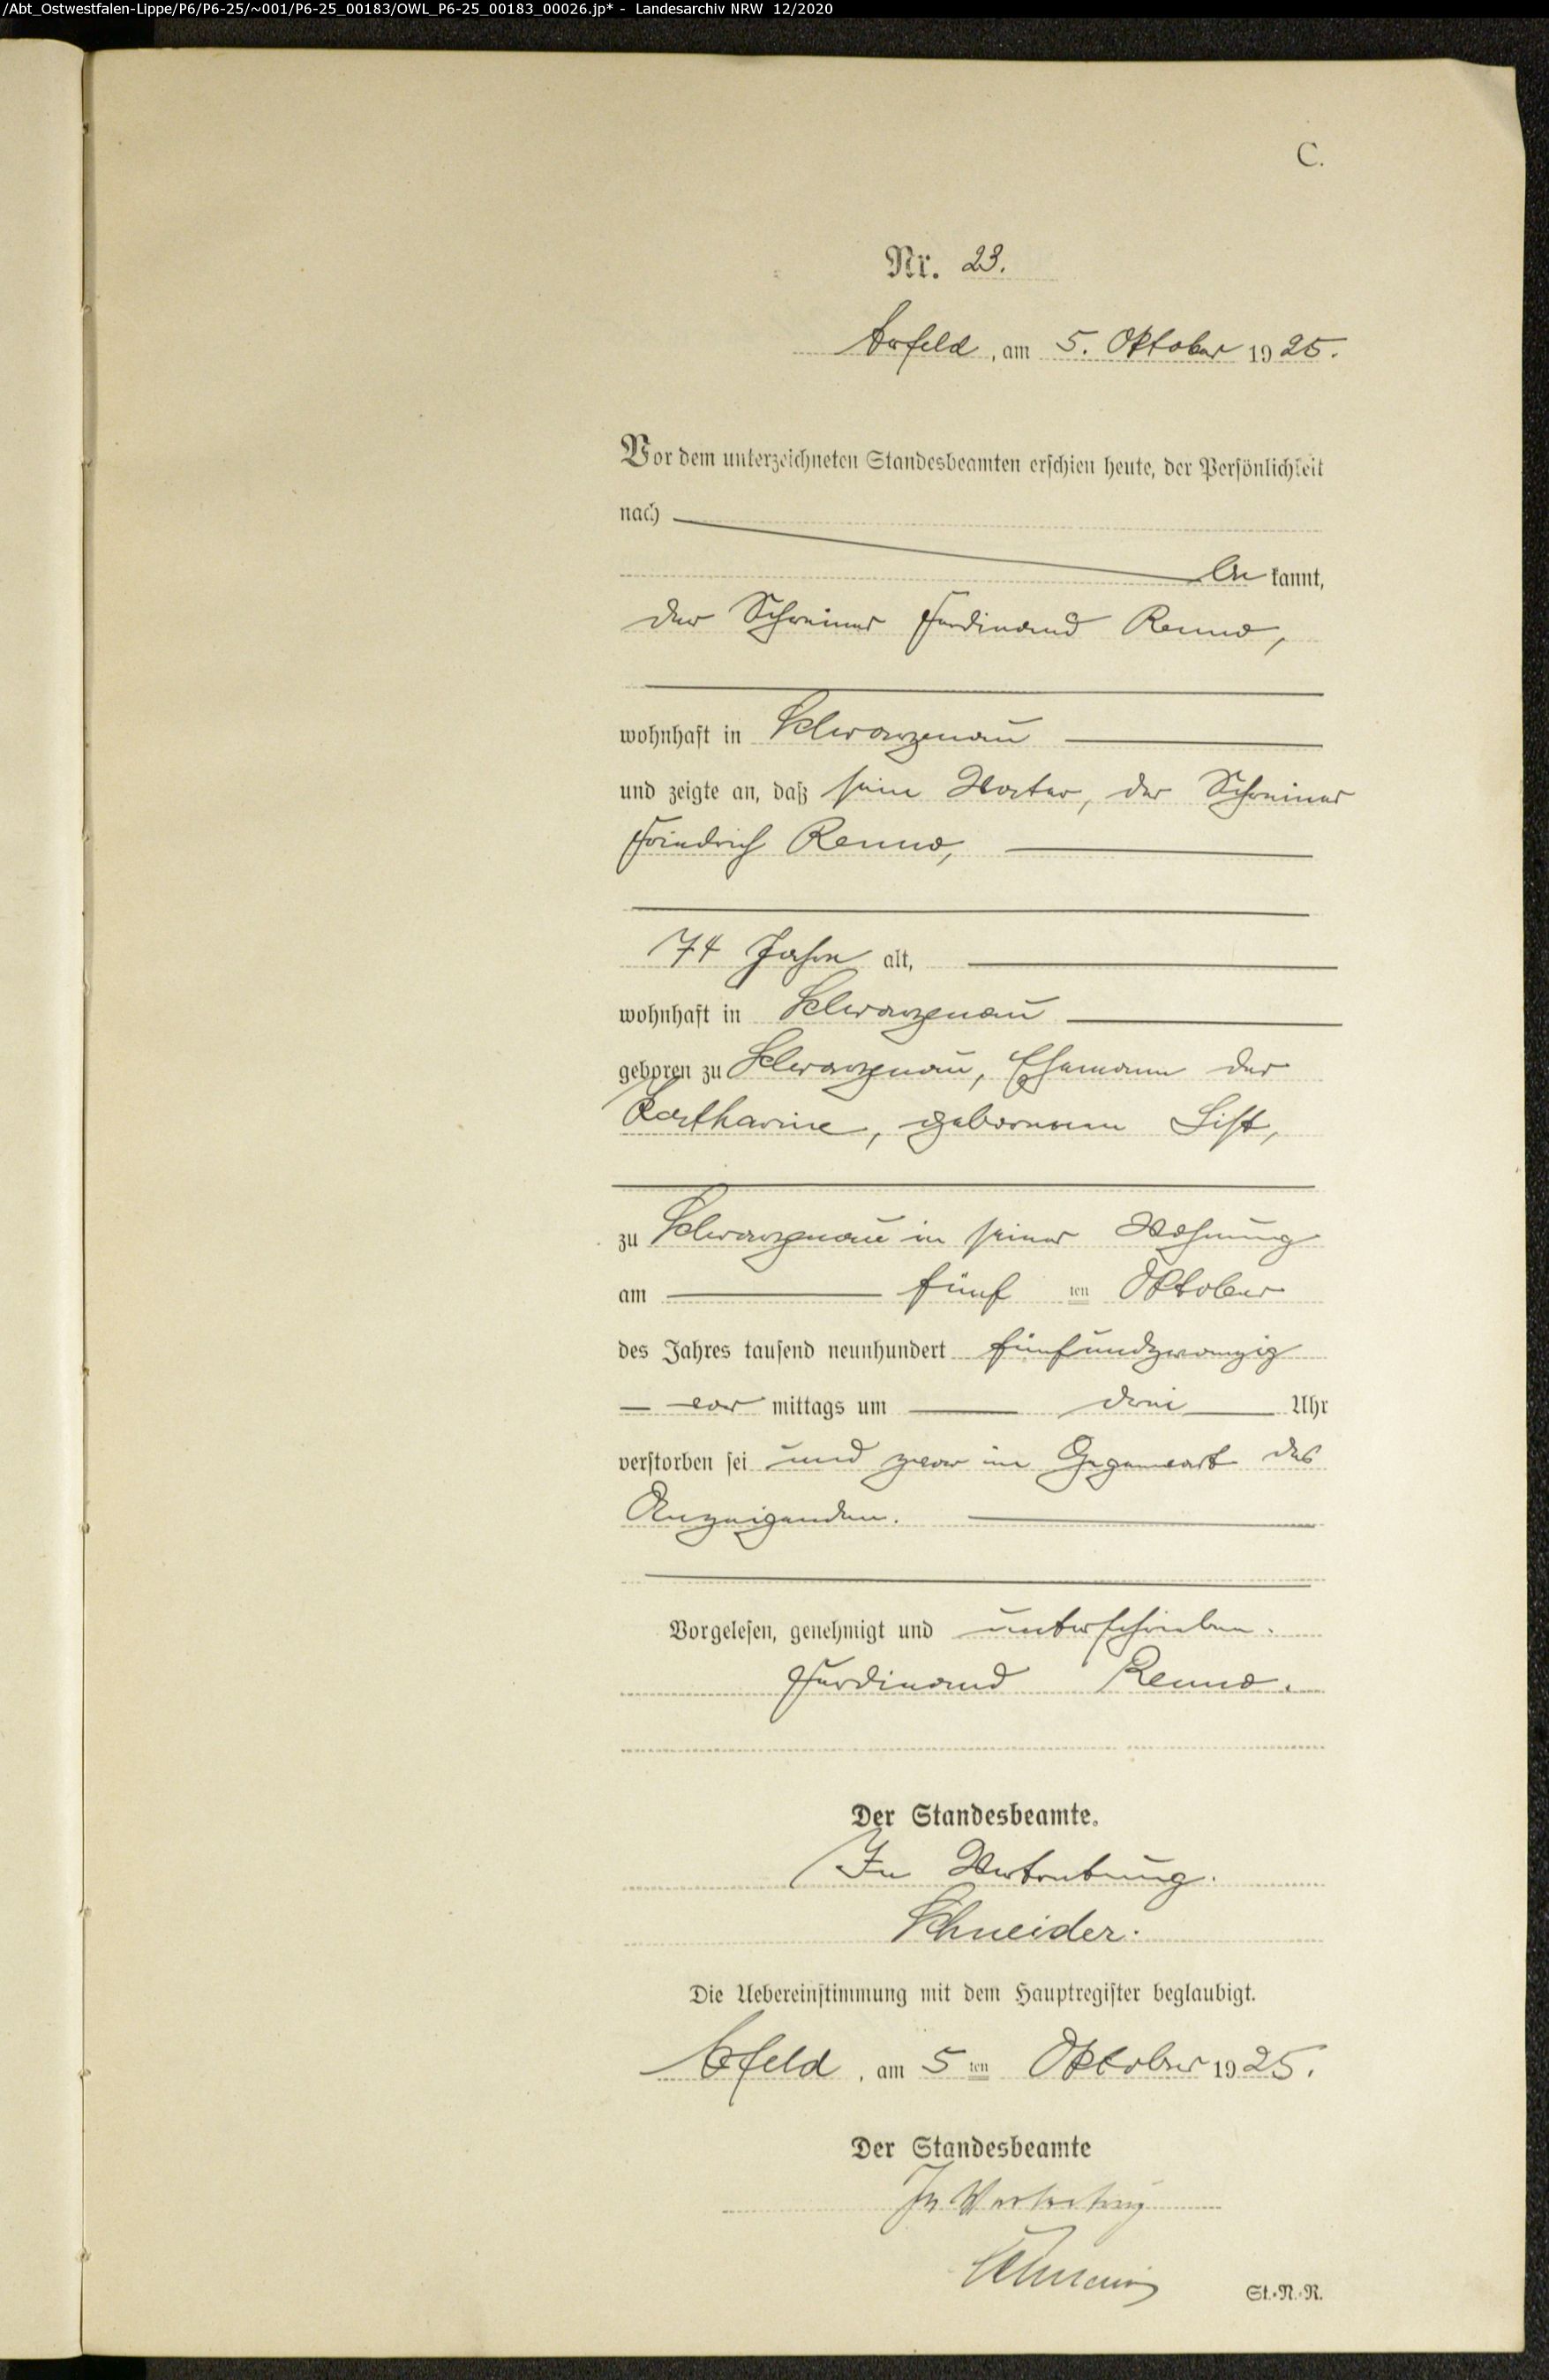 /Abt_Ostwestfalen-Lippe/P6/P6-25/~001/P6-25_00183/OWL_P6-25_00183_00026.jp* - Landesarchiv NRW 12/2020
C.
Nr. 23.
Arfeld, am 5. Oktober 1925.
Vor dem unterzeichneten Standesbeamten erschien heute, der Persönlichkeit
nach
be kannt,
der Schreiner Ferdinand Renno,
wohnhaft in Schwarzenau
und zeigte an, daß sein Vater, der Schreiner
Friedrich Renno,
74 Jahre alt,
wohnhaft in Schwarzenau
geboren zu Schwarzenau, Ehemann der
Katharine, geborenen List,
zu Schwarzenau in seiner Wohnung
am fünf ten Oktober
des Jahres tausend neunhundert fünfundzwanzig
vor mittags um drei Uhr
verstorben sei und zwar in Gegenwart des
Anzeigenden.
Vorgelesen, genehmigt und unterschrieben.
Ferdinand Renno.
Der Standesbeamte.
In Vertretung.
Schneider.
Die Uebereinstimmung mit dem Hauptregister beglaubigt.
Arfeld, am 5 ten Oktober 1925.
Der Standesbeamte
In Vertretung
St.-N.-R.